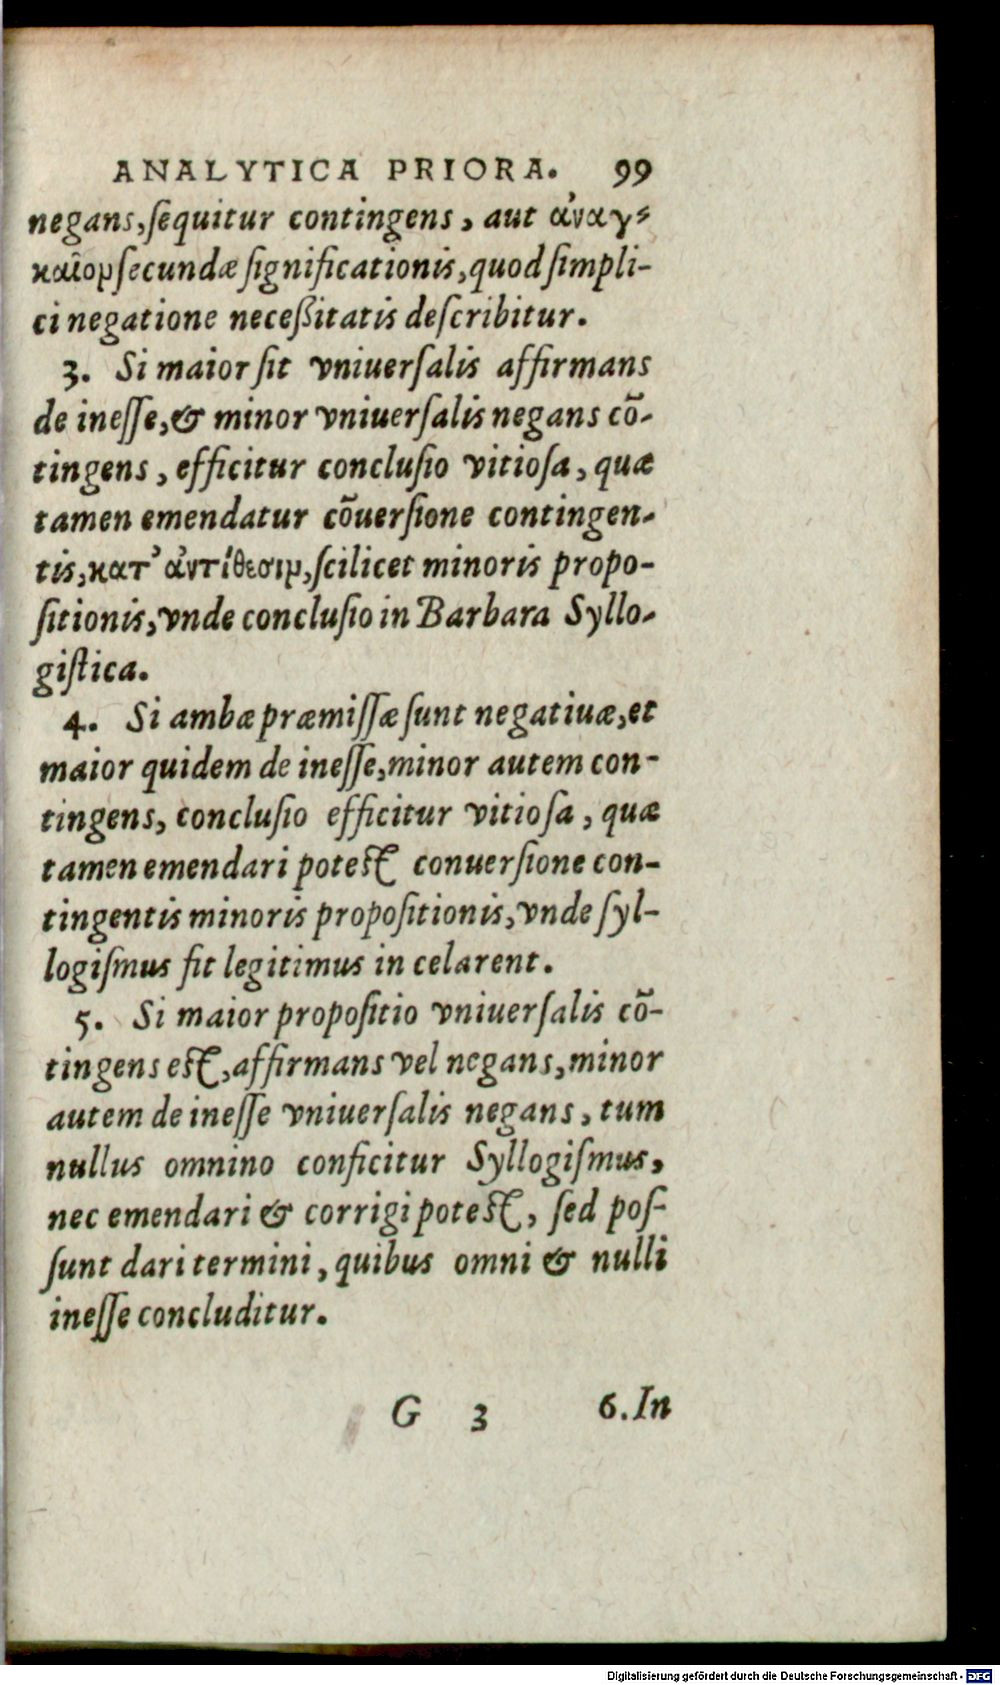 ANALYTICA PRIORA. 99
negans, ſequitur contingens, aut ἀναγ-
καῖον ſecundæ ſignificationis, quod ſimpli-
ci negatione neceßitatis deſcribitur.
3. Si maior ſit vniuerſalis affirmans
de ineſſe, & minor vniuerſalis negans cō-
tingens, efficitur concluſio vitioſa, quæ
tamen emendatur cōuerſione contingen-
tis, κατ’ ἀντίθεσιν, ſcilicet minoris propo-
ſitionis, vnde concluſio in Barbara Syllo-
giſtica.
4. Si ambæ præmiſſæ ſunt negatiuæ, et
maior quidem de ineſſe, minor autem con-
tingens, concluſio efficitur vitioſa, quæ
tamen emendari poteſt conuerſione con-
tingentis minoris propoſitionis, vnde ſyl-
logiſmus fit legitimus in celarent.
5. Si maior propoſitio vniuerſalis cō-
tingens eſt, affirmans vel negans, minor
autem de ineſſe vniuerſalis negans, tum
nullus omnino conficitur Syllogiſmus,
nec emendari & corrigi poteſt, ſed poſ-
ſunt dari termini, quibus omni & nulli
ineſſe concluditur.
G 3 6. In
Digitalisierung gefördert durch die Deutsche Forschungsgemeinschaft - DFG